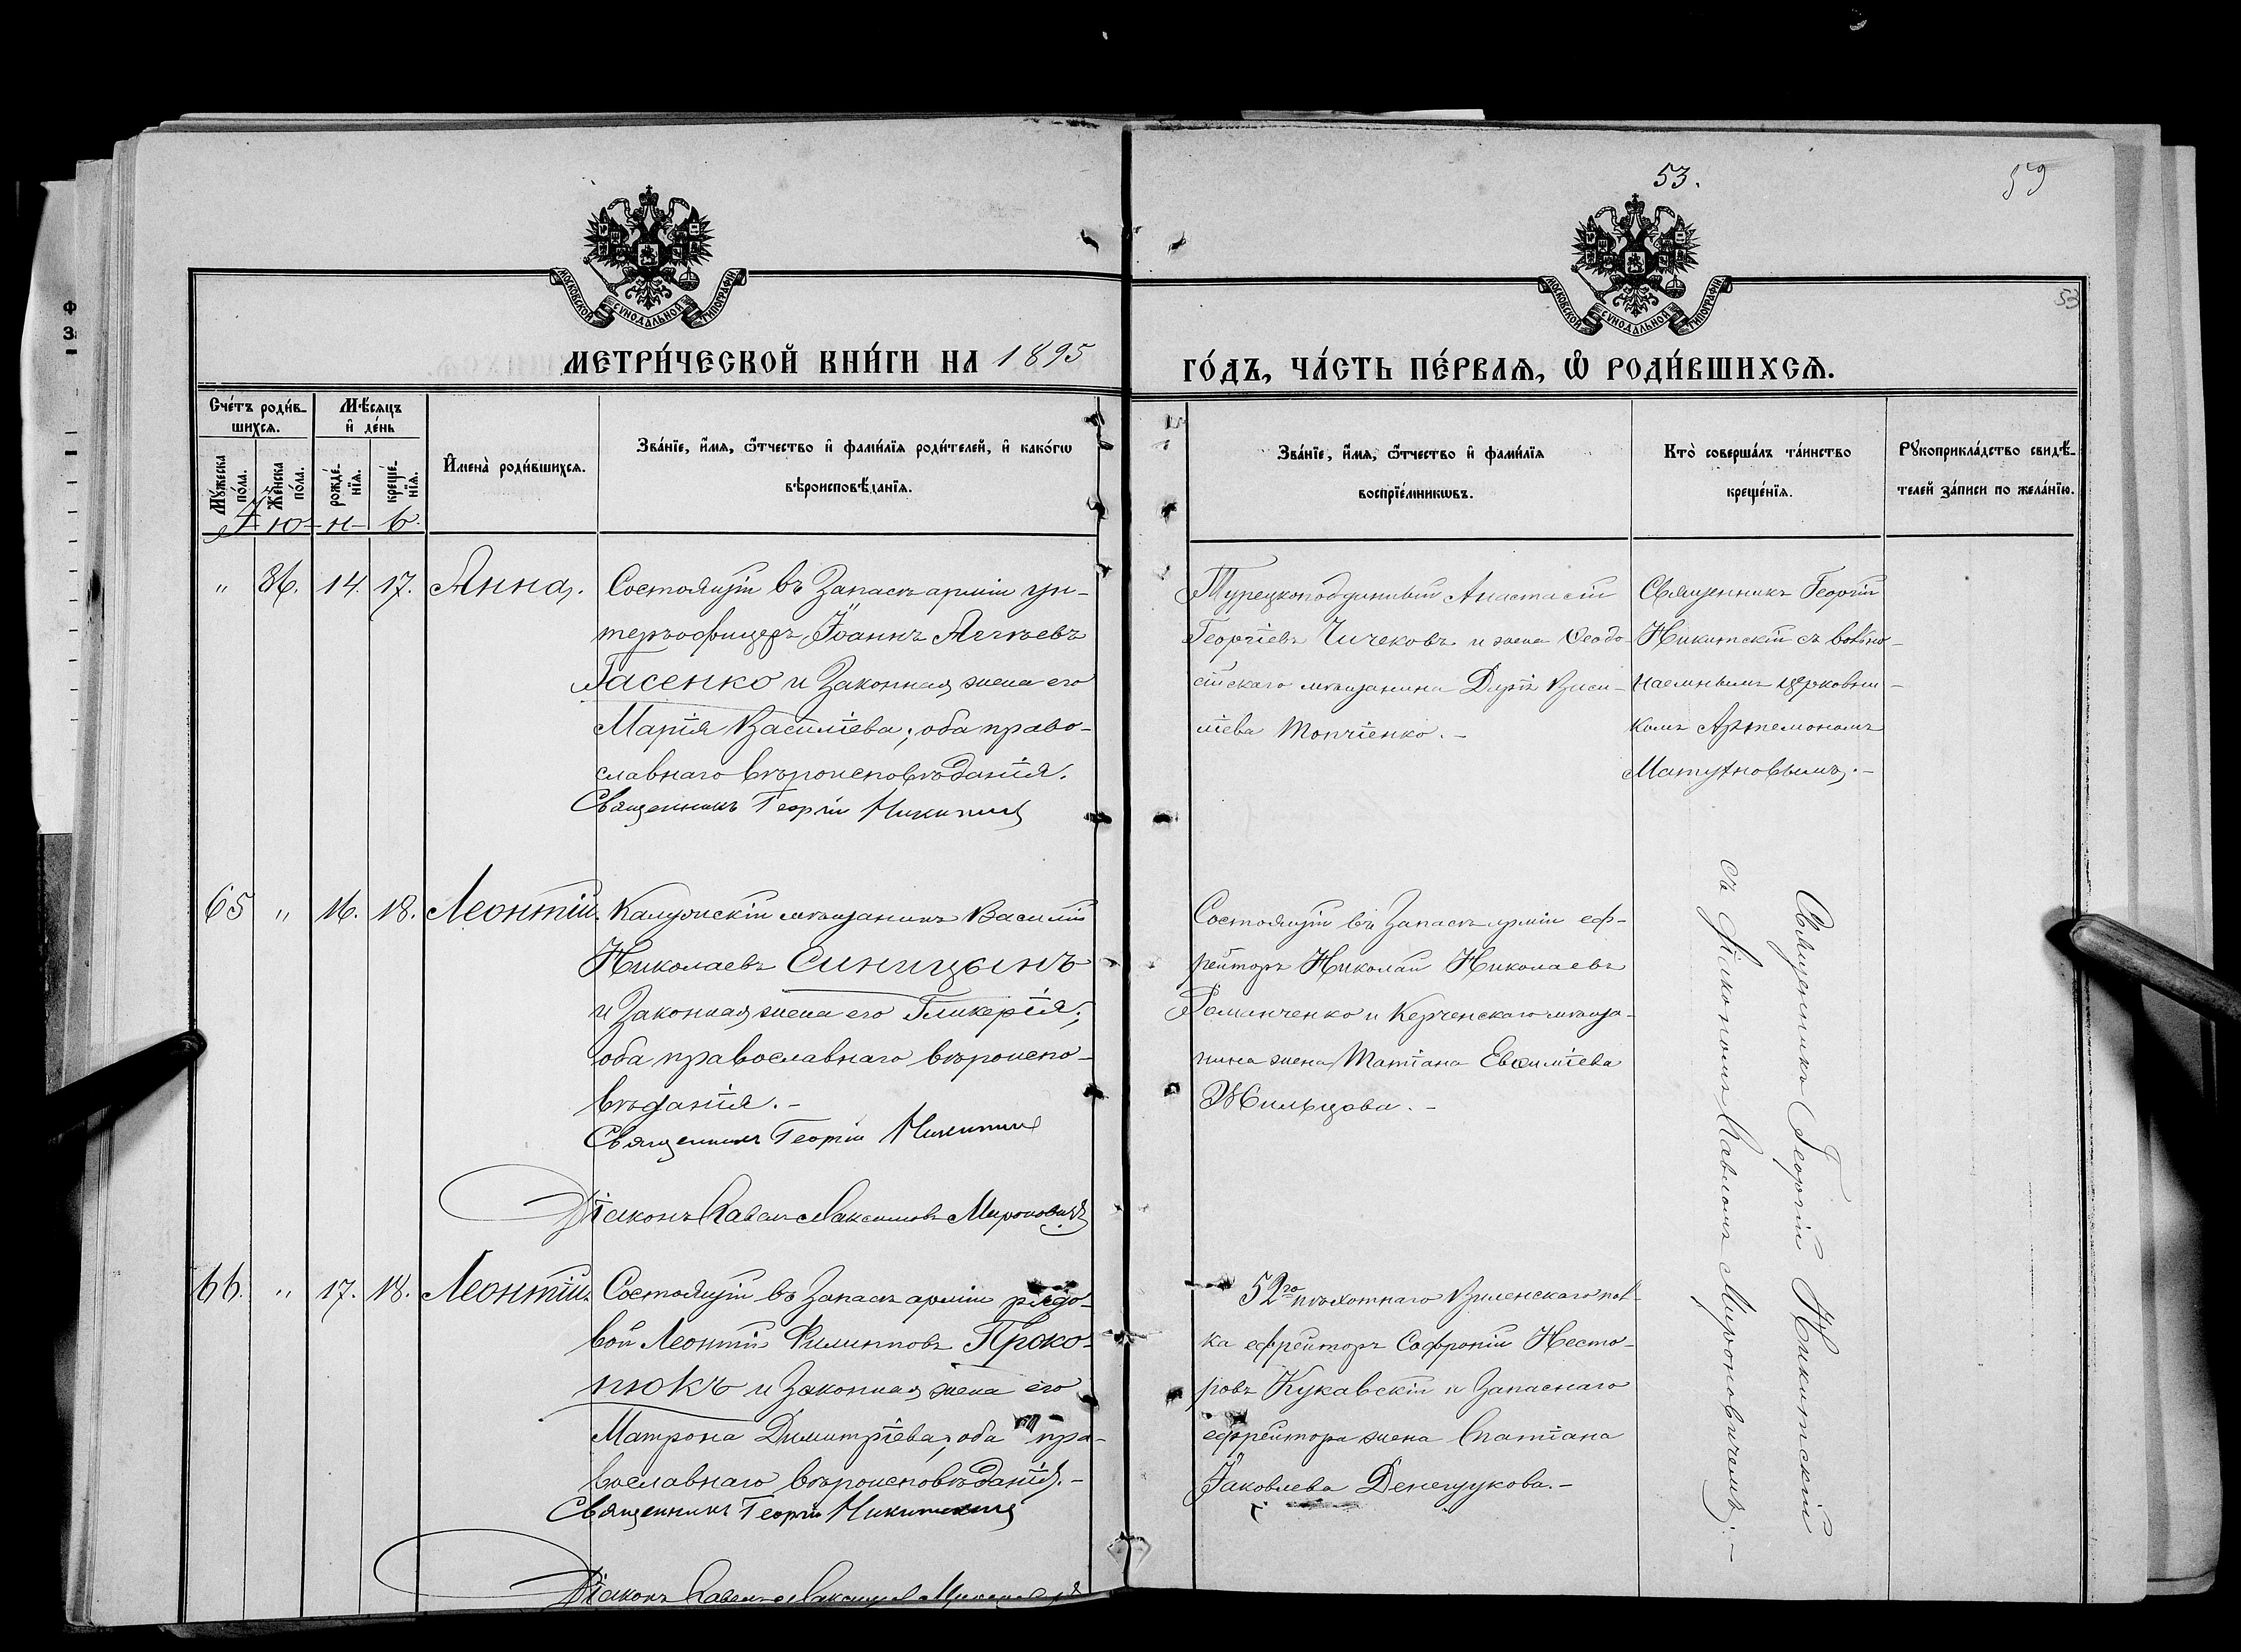 53.
59
53
МОСКОВСКОЙ СѴНОДАЛЬНОЙ ТИПОГРАФІИ
МОСКОВСКОЙ СѴНОДАЛЬНОЙ ТИПОГРАФІИ
МЕТРИ́ЧЕСКОЙ КНИ́ГИ НА 1895
ГО́ДЪ, ЧА́СТЬ ПЕ́РВАѦ, Ѡ҆ РОДИ́ВШИХСѦ.
Сче́тъ роди́в-
шихсѧ.
Мѣ́сѧцъ
и҆ де́нь
Мꙋ́жеска по́ла.
Же́нска по́ла.
рожде́-
нїѧ.
креще́-
нїѧ.
И҆мена̀ роди́вшихсѧ.
Зва́нїе, и҆́мѧ, ѻ҆́тчество и҆ фами́лїѧ роди́телей, и҆ како́гѡ
вѣроисповѣ́данїѧ.
Зва́нїе, и҆́мѧ, ѻ҆́тчество и҆ фами́лїѧ
воспрїе́мникѡвъ.
Кто̀ соверша́лъ та́инство
креще́нїѧ.
Рꙋкоприкла́дство свидѣ́-
телей за́писи по жела́нїю.
І-ю-н-ь
" 86. 14. 17. Анна.
Состоящій въ Запасѣ арміи ун-
теръ-офицеръ Іоаннъ Аггѣевъ
Гасенко и Законная жена его
Марія Василіева; оба право-
славнаго вѣроисповѣданія.
Священникъ Георгій Никитскій
Турецкоподданный Анастасій
Георгіевъ Чичековъ и жена Ѳеодо-
сійскаго мѣщанина Дарія Васи-
ліева Топчіенко.-
Священникъ Георгій
Никитскій съ вольно-
наемнымъ церковни-
комъ Артемономъ
65 " 16. 18. Леонтій.
Калужскій мѣщанинъ Василій
Николаевъ Синицынъ
и Законная жена его Гликерія;
оба православнаго вѣроиспо-
вѣданія.-
Священникъ Георгій Никитскій
Діаконъ Павелъ Максимовъ Мироновичъ
Состоящій въ Запасѣ арміи еф-
рейторъ Николай Николаевъ
Романченко и Керченскаго мѣща-
нина жена Татіана Евѳиміева
Жильцова.-
Священникъ Георгій Никитскій
съ діакономъ Павломъ Мироновичемъ.-
66. " 17. 18. Леонтій.
Состоящій въ Запасѣ арміи рядо-
вой Леонтій Филипповъ Проко-
пюкъ и Законная жена его
Матрона Димитріева; оба пра-
вославнаго вѣроисповѣданія.-
Священникъ Георгій Никитскій
Діаконъ Павелъ Максимовъ Мироновичъ
52го пѣхотнаго Виленскаго пол-
ка ефрейторъ Софроній Несто-
ровъ Кукавскій и Запаснаго
ефрейтора жена
Іаковлева Денещукова.-